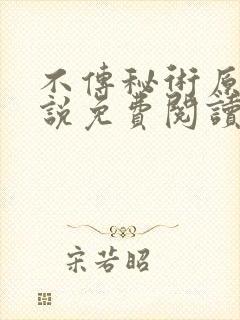 不傳秘術原
說免費閱讀
宋若昭